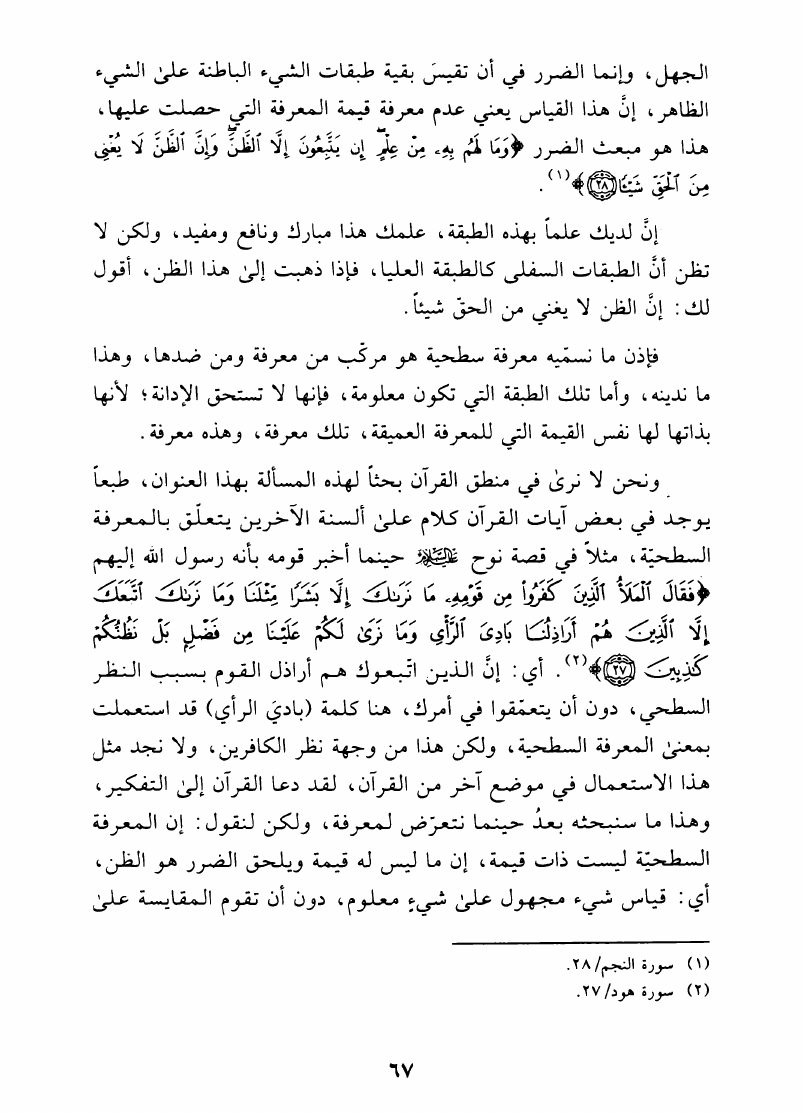 الجهل، وإنما الضرر في أن تقيسَ بقية طبقات الشيء الباطنة علىٰ الشيء
الظاهر، إنَّ هذا القياس يعني عدم معرفة قيمة المعرفة التي حصلت عليها،
هذا هو مبعث الضرر ﴿وَمَا لَهُم بِهِۦ مِنْ عِلْمٍ ۖ إِن يَتَّبِعُونَ إِلَّا ٱلظَّنَّ ۖ وَإِنَّ ٱلظَّنَّ لَا يُغْنِى
مِنَ ٱلْحَقِّ شَيْـًٔا ۝٢٨﴾(١).
إنَّ لديك علماً بهذه الطبقة، علمك هذا مبارك ونافع ومفيد، ولكن لا
تظن أنَّ الطبقات السفلى كالطبقة العليا، فإذا ذهبت إلىٰ هذا الظن، أقول
لك: إنَّ الظن لا يغني من الحقّ شيئاً.
فإذن ما نسمّيه معرفة سطحية هو مركّب من معرفة ومن ضدها، وهذا
ما ندينه، وأما تلك الطبقة التي تكون معلومة، فإنها لا تستحق الإدانة؛ لأنها
بذاتها لها نفس القيمة التي للمعرفة العميقة، تلك معرفة، وهذه معرفة.
ونحن لا نرىٰ في منطق القرآن بحثاً لهذه المسألة بهذا العنوان، طبعاً
يوجد في بعض آيات القرآن كلام علىٰ ألسنة الآخرين يتعلّق بالمعرفة
السطحيّة، مثلاً في قصة نوح عليه السلام حينما أخبر قومه بأنه رسول الله إليهم
﴿فَقَالَ ٱلْمَلَأُ ٱلَّذِينَ كَفَرُوا۟ مِن قَوْمِهِۦ مَا نَرَىٰكَ إِلَّا بَشَرًا مِّثْلَنَا وَمَا نَرَىٰكَ ٱتَّبَعَكَ
إِلَّا ٱلَّذِينَ هُمْ أَرَاذِلُنَا بَادِىَ ٱلرَّأْىِ وَمَا نَرَىٰ لَكُمْ عَلَيْنَا مِن فَضْلٍۭ بَلْ نَظُنُّكُمْ
كَـٰذِبِينَ ۝٢٧﴾(٢). أي: إنَّ الذين اتّبعوك هم أراذل القوم بسبب النظر
السطحي، دون أن يتعمّقوا في أمرك، هنا كلمة (باديَ الرأي) قد استعملت
بمعنىٰ المعرفة السطحية، ولكن هذا من وجهة نظر الكافرين، ولا نجد مثل
هذا الاستعمال في موضع آخر من القرآن، لقد دعا القرآن إلىٰ التفكير،
وهذا ما سنبحثه بعدُ حينما نتعرّض لمعرفة، ولكن لنقول: إن المعرفة
السطحيّة ليست ذات قيمة، إن ما ليس له قيمة ويلحق الضرر هو الظن،
أي: قياس شيء مجهول علىٰ شيءٍ معلوم، دون أن تقوم المقايسة علىٰ
(١) سورة النجم/٢٨.
(٢) سورة هود/٢٧.
٦٧